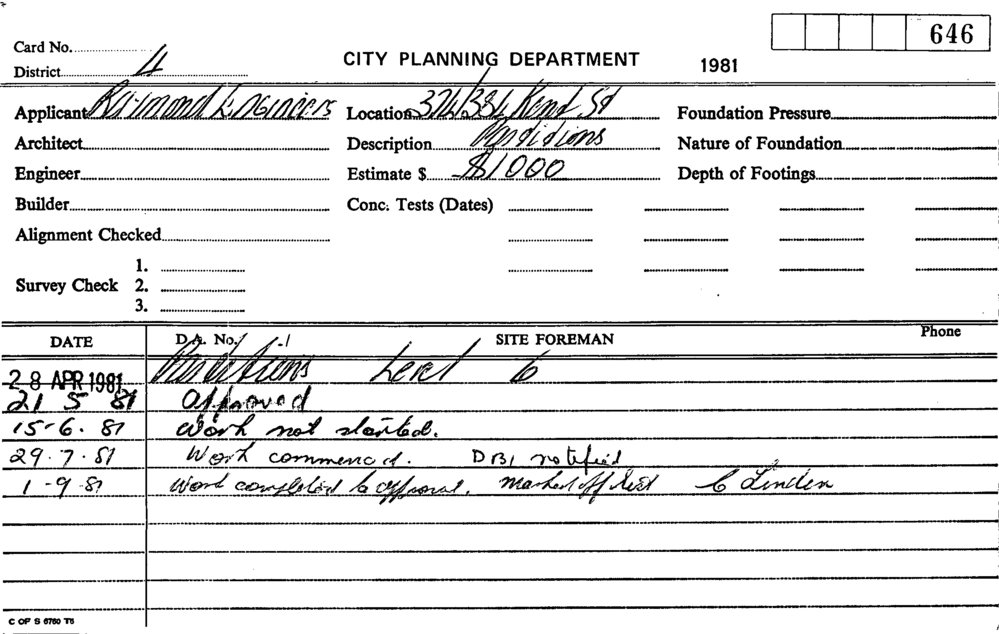 646
Card No.
District 4
CITY PLANNING DEPARTMENT 1981
Applicant Engineers Location 374/384 Kent St Foundation Pressure
Architect Description Partitions Nature of Foundation
Engineer Estimate $ $1000 Depth of Footings
Builder Conc. Tests (Dates)
Alignment Checked
1.
Survey Check 2.
3.
DATE D.A. No. SITE FOREMAN Phone
28 APR 1981 Partitions Level 6
21 5 81 Approved
15-6. 81 Work not started.
29.7.81 Work commenced. DBI notified
1-9-81 Work completed to approval. Marked off list C Linden
C OF S 6760 T6